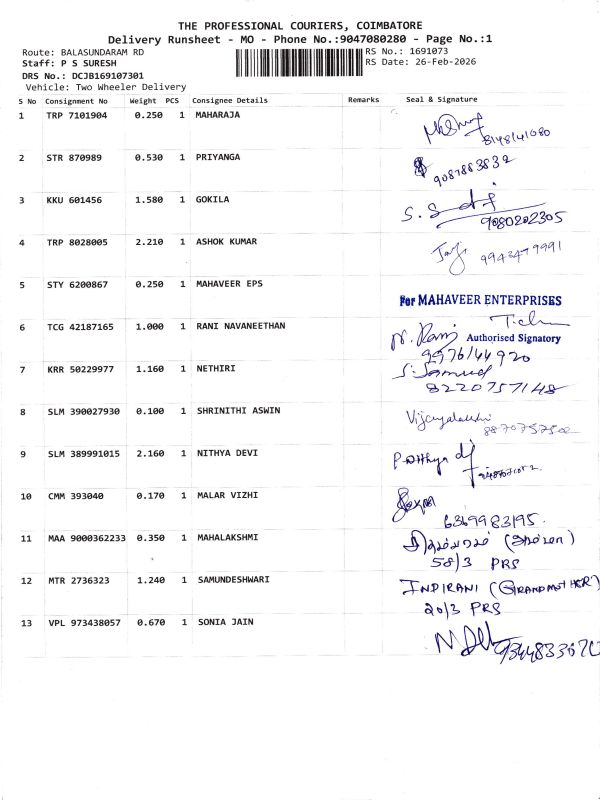 THE PROFESSIONAL COURIERS, COIMBATORE
Delivery Runsheet - MO - Phone No.:9047080280 - Page No.:1
Route: BALASUNDARAM RD
RS No.: 1691073
Staff: P S SURESH
RS Date: 26-Feb-2026
DRS No.: DCJB169107301
Vehicle: Two Wheeler Delivery
S No Consignment No Weight PCS Consignee Details Remarks Seal & Signature
1 TRP 7101904 0.250 1 MAHARAJA
8148141080
2 STR 870989 0.530 1 PRIYANGA
9087883832
3 KKU 601456 1.580 1 GOKILA
9080202305
4 TRP 8028005 2.210 1 ASHOK KUMAR
5 STY 6200867 0.250 1 MAHAVEER EPS
For MAHAVEER ENTERPRISES
Authorised Signatory
6 TCG 42187165 1.000 1 RANI NAVANEETHAN
N. Rani
9976144920
7 KRR 50229977 1.160 1 NETHIRI
8220757148
8 SLM 390027930 0.100 1 SHRINITHI ASWIN
Vijayalakshi
9 SLM 389991015 2.160 1 NITHYA DEVI
10 CMM 393040 0.170 1 MALAR VIZHI
6369983195.
11 MAA 9000362233 0.350 1 MAHALAKSHMI
58/3 PRS
12 MTR 2736323 1.240 1 SAMUNDESHWARI
INDIRANI (GRANDMOTHER)
20/3 PRS
13 VPL 973438057 0.670 1 SONIA JAIN